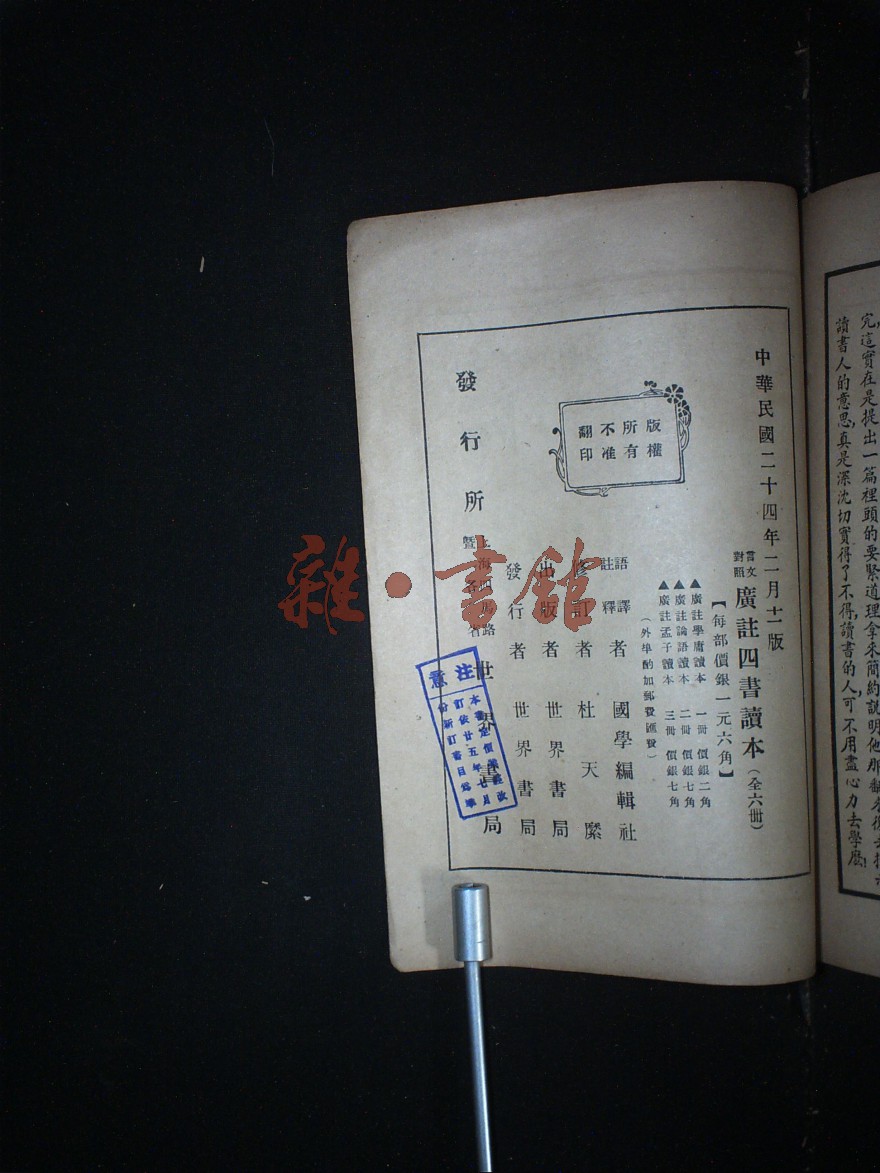 完這實在是提出一篇裡頭的要緊道理拿來簡約說明他那
讀書人的意思,真是深沈切實得了不得,讀書的人,可不用盡心力去學麽!
中華民國二十四年二月十一版
言文對照 廣註四書讀本(全六冊)
【每部價銀一元六角】
▲廣註學庸讀本 一冊 價銀二角
▲廣註論語讀本 二冊 價銀七角
▲廣註孟子讀本 三冊 價銀七角
(外埠酌加郵費匯費)
版權所有不准翻印
語譯註釋者 國學編輯社
修訂者 杜天縻
出版者 世界書局
發行者 世界書局
發行所 上海四馬路暨各省 世界書局
注意
本書定價業經改
訂依廿五年七月
份新訂書目為準
雜·書館